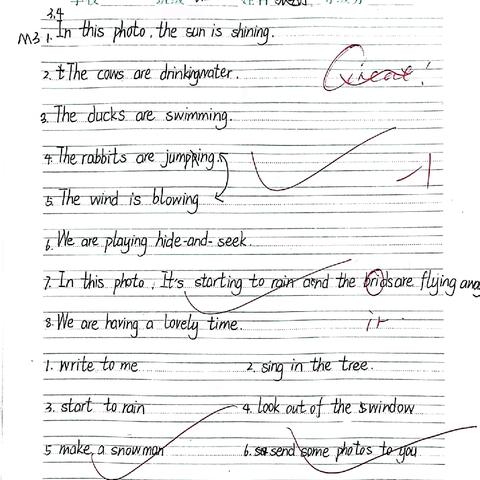 3,4
M3 1. In this photo, the sun is shining.
2. The cows are drinking water.
Great!
3. The ducks are swimming.
4. The rabbits are jumping.
-1
5. The wind is blowing
6. We are playing hide-and-seek.
7. In this photo, It's starting to rain and the brids are flying
8. We are having a lovely time.
ir
1. write to me 2. sing in the tree.
3. start to rain 4. look out of the window
5 make a snowman 6. send some photos to you